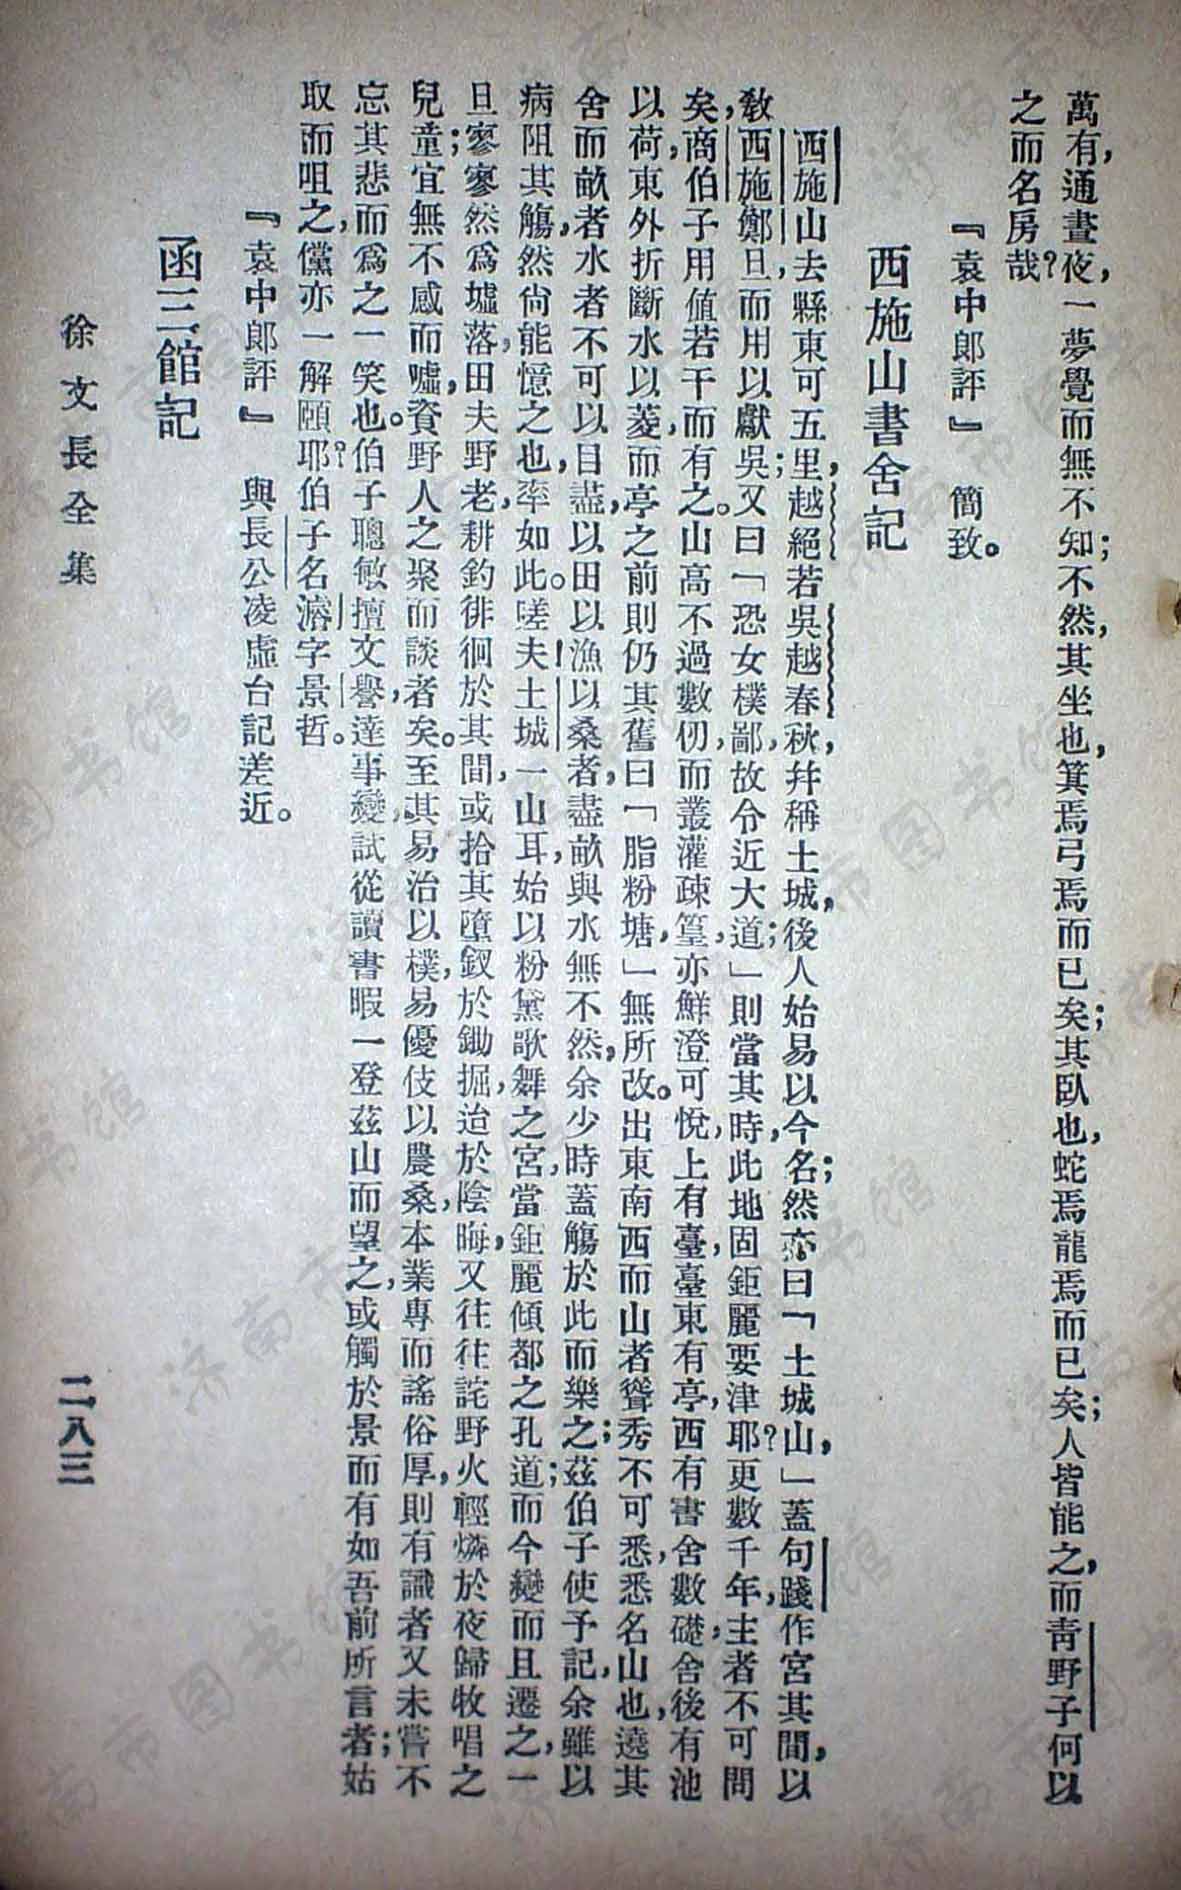 萬有，通晝夜，一夢覺而無不知；不然，其坐也，箕焉弓焉而已矣；其臥也，蛇焉龍焉而已矣；人皆能之，而青野子何以
之而名房哉？
『袁中郎評』　簡致。
西施山書舍記
西施山去縣東可五里，越絕若吳越春秋，幷稱土城，後人始易以今名；然亦曰「土城山，」蓋句踐作宮其間，以
敎西施鄭旦而用以獻吳；又曰「恐女樸鄙，故令近大道；」則當其時，此地固鉅麗要津耶？更數千年，主者不可問
矣，商伯子用値若干，而有之。山高不過數仞，而叢灌疎篁，亦鮮澄可悅，上有臺，臺東有亭，西有書舍數礎，舍後有池
以荷，東外折斷水以菱，而亭之前則仍其舊曰「脂粉塘，」無所改。出東南西而山者聳秀不可悉，悉名山也，遶其
舍而畝者水者不可以日盡，以田以漁以桑者，盡畝與水無不然，余少時蓋觴於此而樂之；茲伯子使予記，余雖以
病阻其觴，然尙能憶之也，率如此。嗟夫！土城一山耳，始以粉黛歌舞之宮，當鉅麗傾都之孔道；而今變而且遷之，一
旦寥寥然爲墟落，田夫野老，耕釣徘徊於其間，或拾其墮釵於鋤掘，迨於陰晦，又往往詫野火輕燐於夜歸牧唱之
兒童；宜無不感而噓，資野人之聚而談者矣。至其易治以樸，易優伎以農桑，本業專而謠俗厚，則有識者又未嘗不
忘其悲而爲之一笑也。伯子聰敏擅文譽，達事變，試從讀書暇一登茲山而望之，或觸於景而有如吾前所言者；姑
取而咀之，儻亦一解頤耶？伯子名濬字景哲。
『袁中郎評』　與長公凌虛台記差近。
函三館記
徐文長全集
二八三